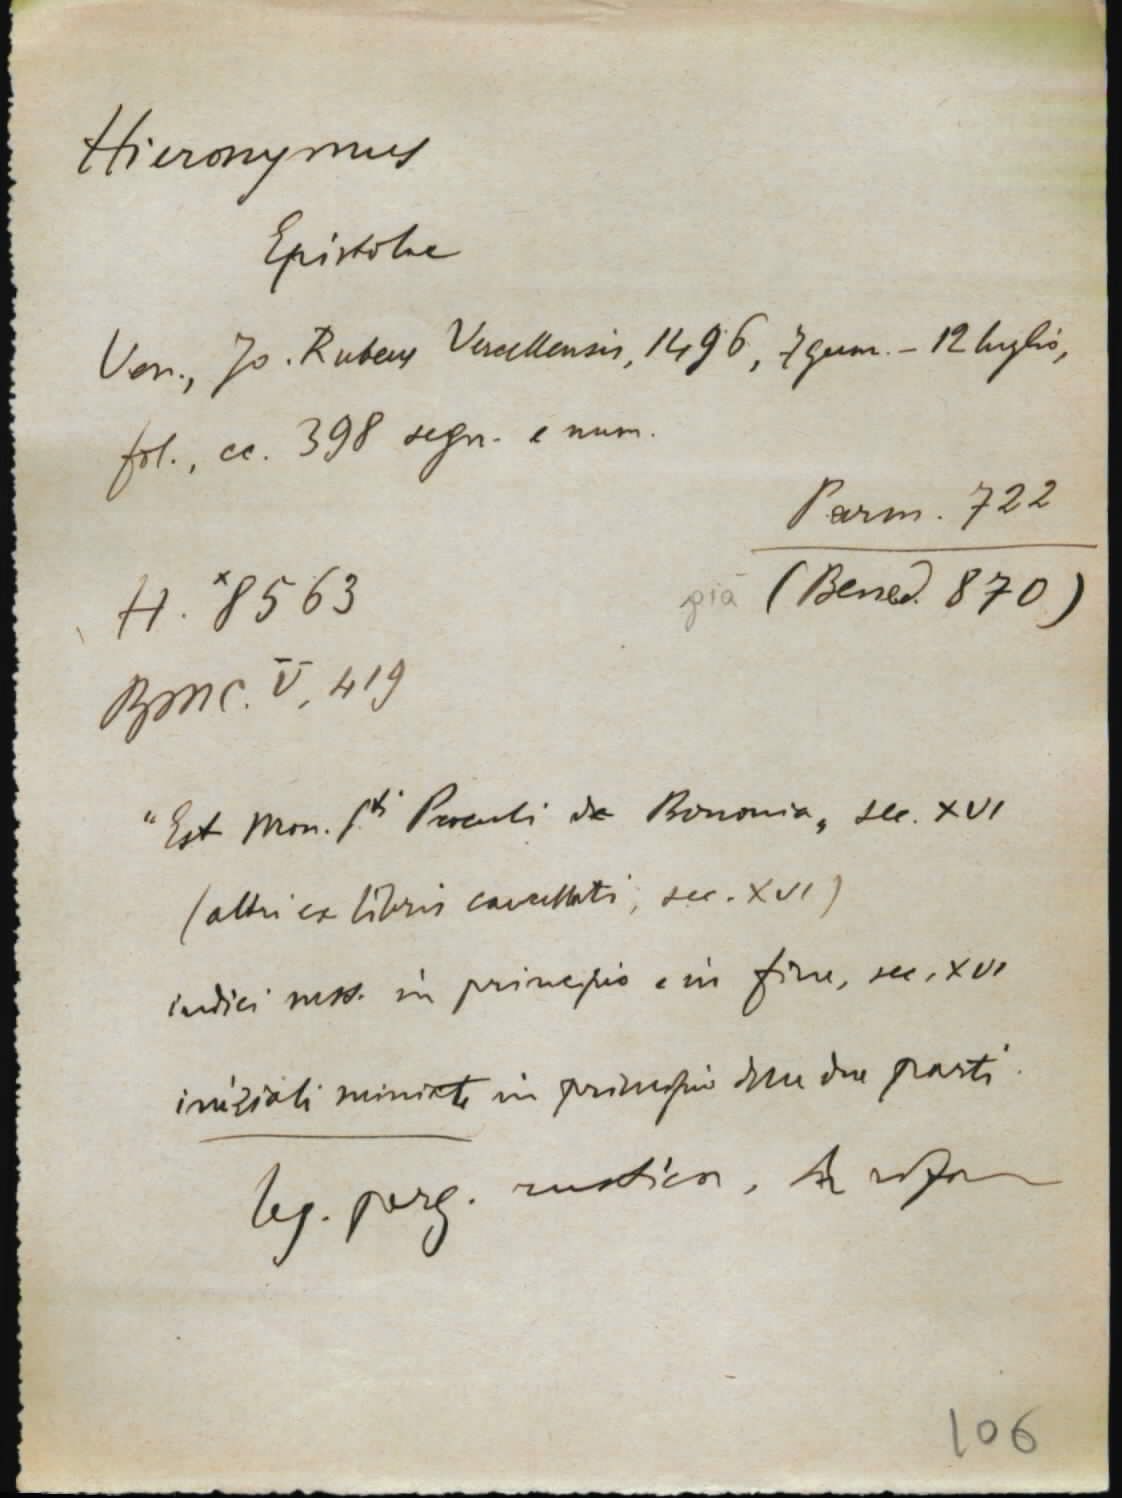 Hieronymus
Epistolae
Ven., Jo. Rubeus Vercellensis, 1496, 7 genn. - 12 luglio,
fol., cc. 398 segn. e num.
Parm. 722
già (Bened. 870)
H. *8563
BMC. V, 419
"Est Mon. S.ti Proculi de Bononia„ sec. XVI
(altri ex libris cancellati, sec. XVI)
indici mss. in principio e in fine, sec. XVI
iniziali miniate in principio delle due parti.
leg. perg. rustica, da
106